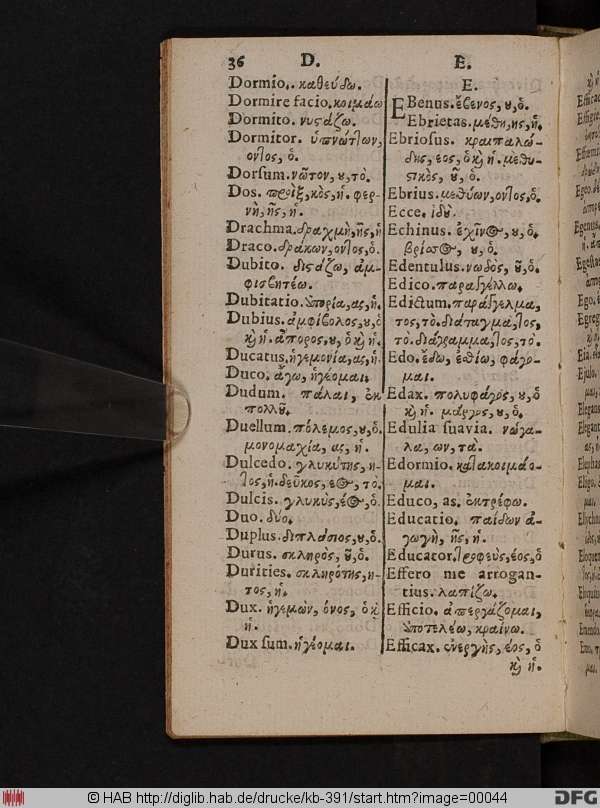 36 D. E.
Dormio. καθεύδω.
Dormire facio. κοιμάω
Dormito. νυστάζω.
Dormitor. ὑπνώτλων,
οντος, ὁ.
Dorsum. νῶτον, ου, τὸ.
Dos. προὶξ, κὸς, ἡ. φερ-
νὴ, ῆς, ἡ.
Drachma. δραχμὴ, ῆς, ἡ
Draco. δράκων, οντος, ὁ.
Dubito. διστάζω, ἀμ-
φισβητέω.
Dubitatio. ἀπορία, ας, ἡ.
Dubius. ἀμφίβολος, ου, ὁ
καὶ ἡ. ἄπορος, ου, ὁ καὶ ἡ.
Ducatus, ἡγεμονία, ας, ἡ.
Duco. ἄγω, ἡγέομαι.
Dudum. πάλαι, ἐκ
πολλοῦ.
Duellum. πόλεμος, ου, ὁ.
μονομαχία, ας, ἡ.
Dulcedo. γλυκύτης, η-
τος, ἡ. δεῦκος, εος, τὸ.
Dulcis. γλυκὺς, έος, ὁ.
Duo. δύο.
Duplus. διπλάσιος, ου, ὁ.
Durus. σκληρὸς, οῦ, ὁ.
Durities. σκληρότης, η-
τος, ἡ.
Dux. ἡγεμὼν, όνος, ὁ καὶ
ἡ.
Dux sum. ἡγέομαι.
E.
EBenus. ἔβενος, ου, ὁ.
Ebrietas. μέθη, ης, ἡ.
Ebriosus. κραιπαλώ-
δης, εος, ὁ καὶ ἡ. μεθυ-
στικὸς, οῦ, ὁ.
Ebrius. μεθύων, οντος, ὁ.
Ecce. ἰδού.
Echinus. ἐχῖνος, ου, ὁ.
βρίσσος, ου, ὁ.
Edentulus. νωδος, οῦ, ὁ.
Edico. παραγγέλλω.
Edictum. παράγγελμα,
τος, τὸ. διάταγμα, τος,
τὸ. διάγραμμα, τος, τὸ.
Edo. ἔδω, ἐσθίω, φάγο-
μαι.
Edax. πολυφάγος, ου, ὁ
καὶ ἡ. μάργος, ου, ὁ.
Edulia suavia. νώγα-
λα, ων, τὰ.
Edormio. κατακοιμάο-
μαι.
Educo, as. ἐκτρέφω.
Educatio. παίδων ἀ-
γωγὴ, ῆς, ἡ.
Educator. τροφεὺς, έος, ὁ
Effero me arrogan-
tius. λαπίζω.
Efficio. ἀπεργάζομαι,
ἀποτελέω, κραίνω.
Efficax. ἐνεργὴς, έος, ὁ
καὶ ἡ.
© HAB http://diglib.hab.de/drucke/kb-391/start.htm?image=00044
DFG